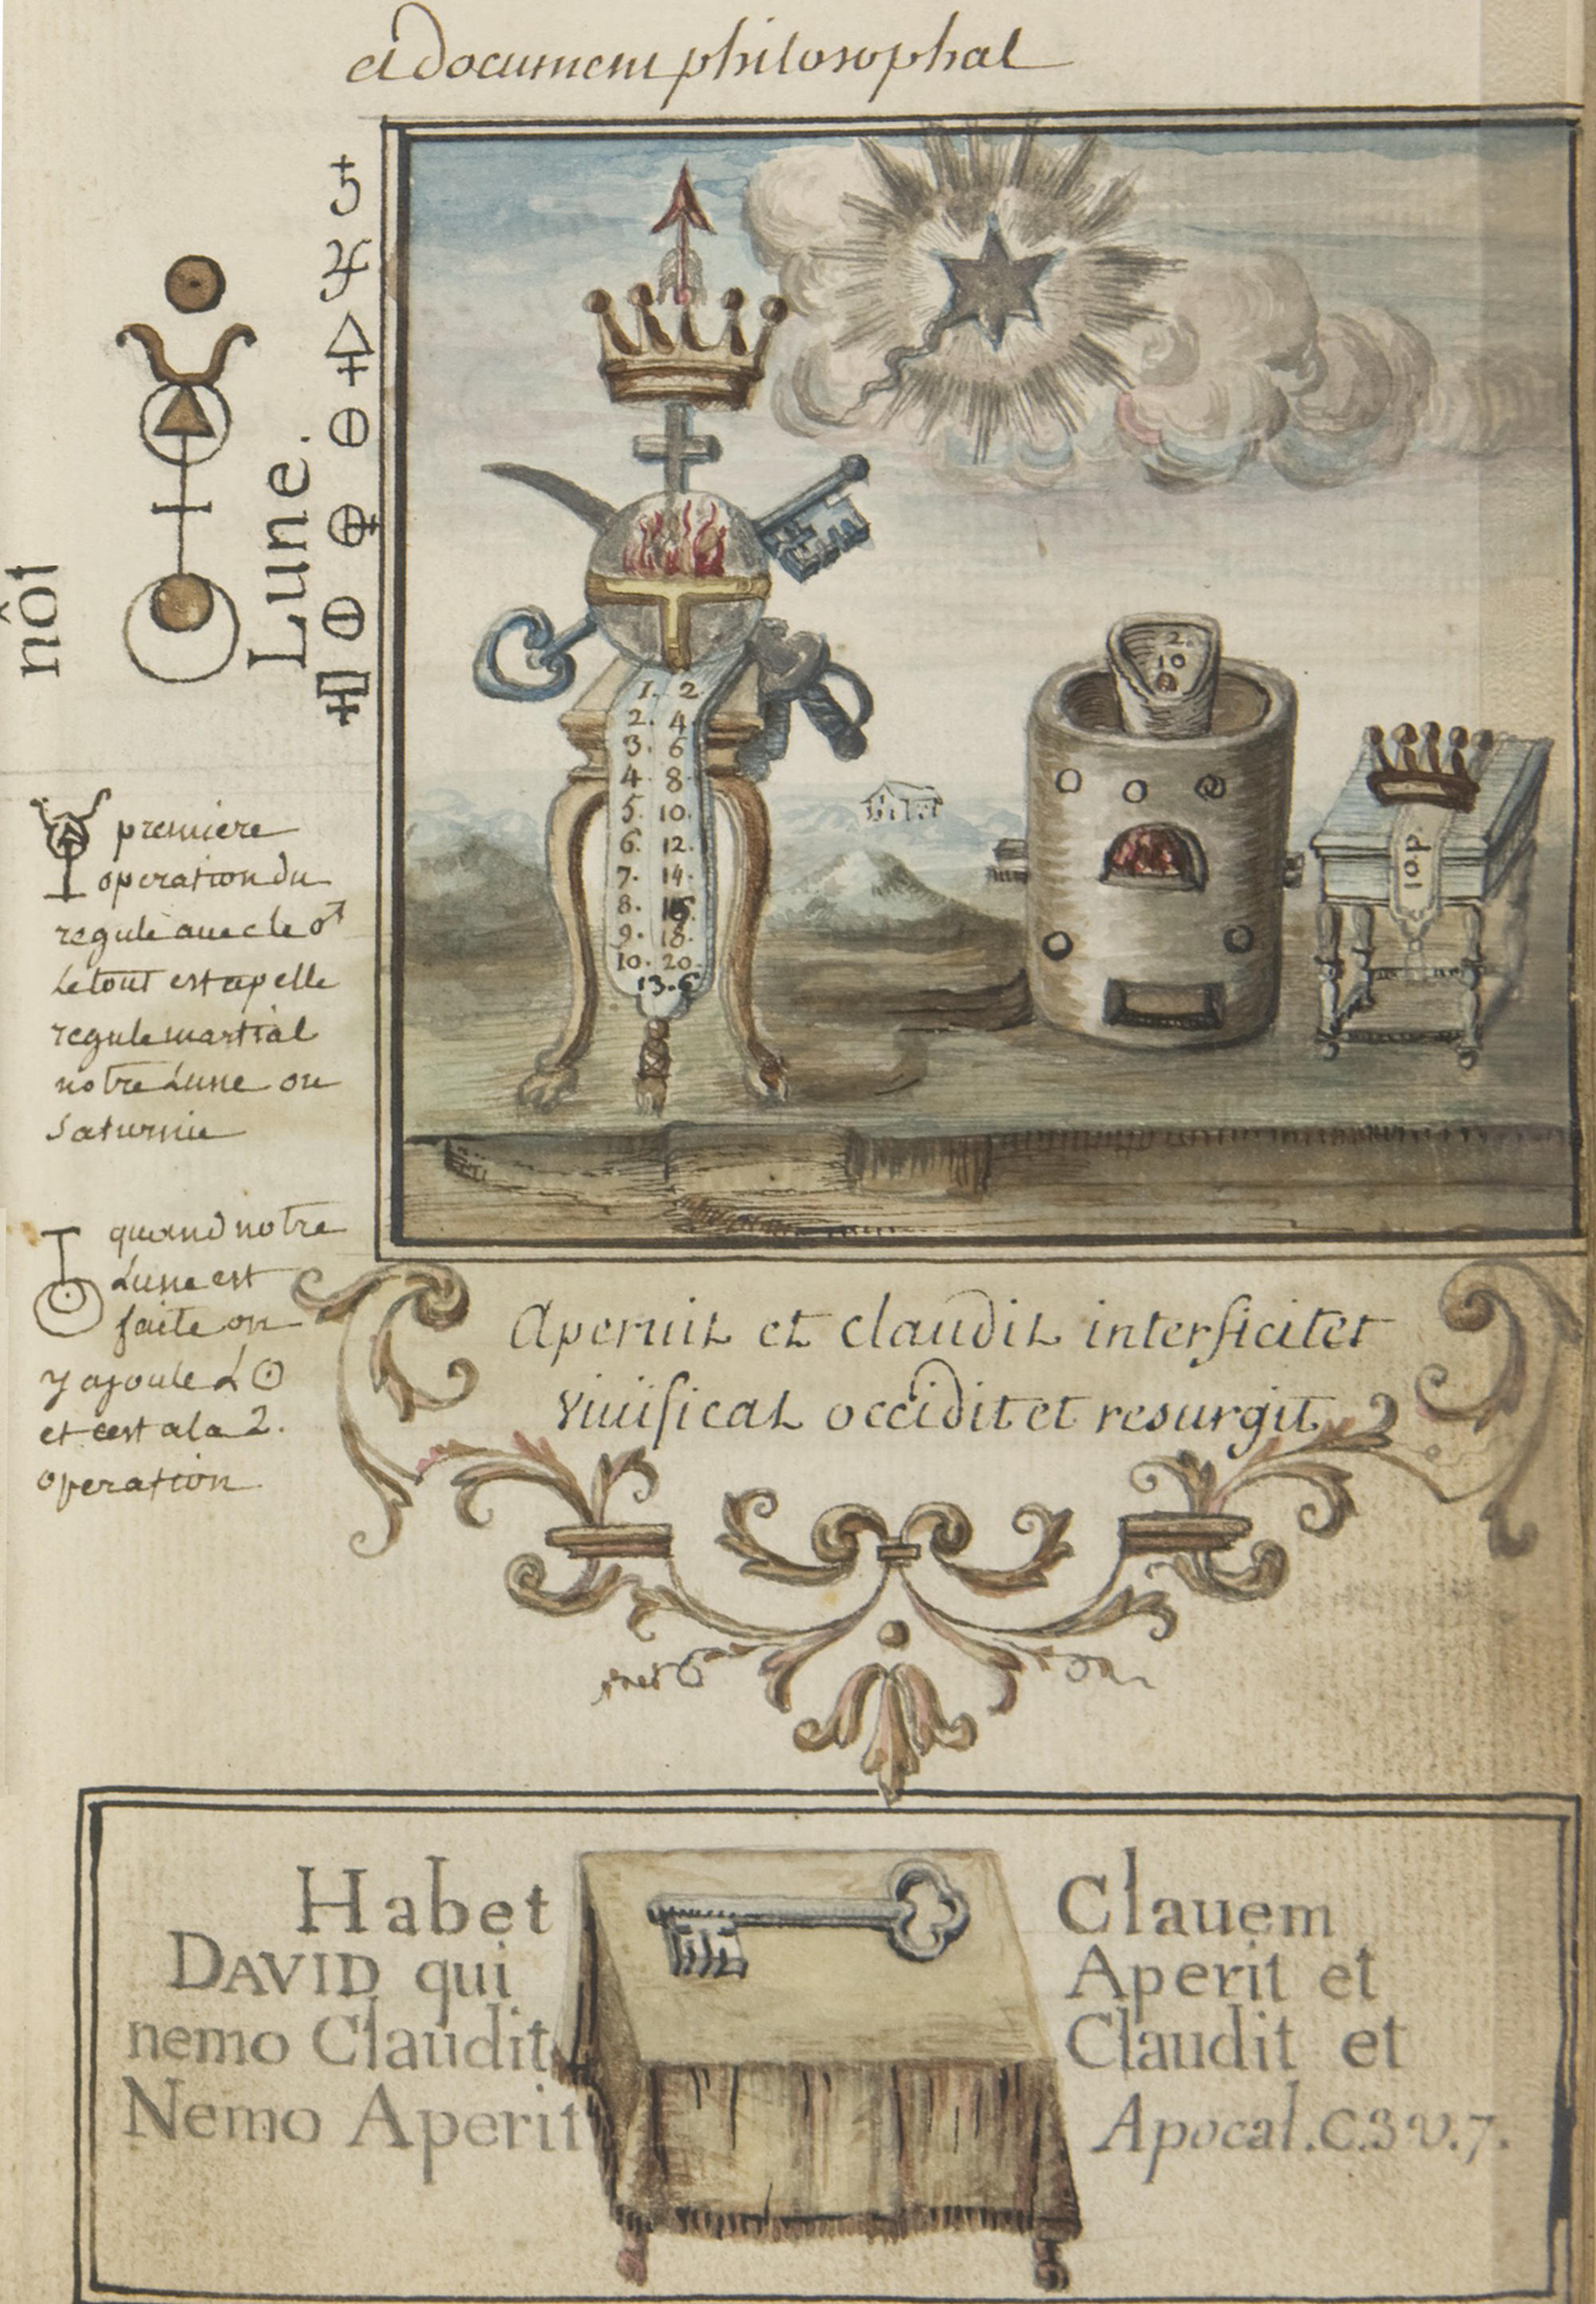 et document philosophal
♄
♃
🜍
nôt
Lune.
1. 2
2. 4
3. 6
4. 8
5. 10.
6. 12.
7. 14.
8. 16.
9. 18.
10. 20.
13. 6
2.
10
10p.
premiere
operation du
regule avec le ♂
Le tout est apelle
regule martial
notre Lune ou
Saturnie
quand notre
Lune est
faite on
y ajoute L ☉
et cest a la 2.
operation
Aperuit et claudit interficit et
viuificat occidit et resurgit
Habet Clauem
DAVID qui Aperit et
nemo Claudit Claudit et
Nemo Aperit Apocal. C.3 v.7.